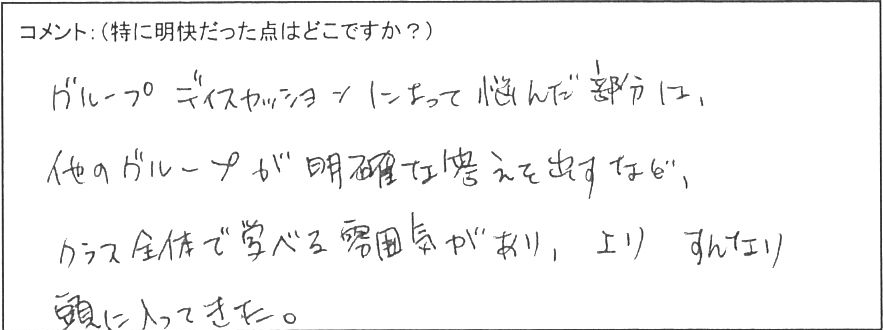 コメント：（特に明快だった点はどこですか？）
グループディスカッションによって悩んだ部分は、
他のグループが明確な答えを出すなど、
クラス全体で学べる雰囲気があり、よりすんなり
頭に入ってきた。